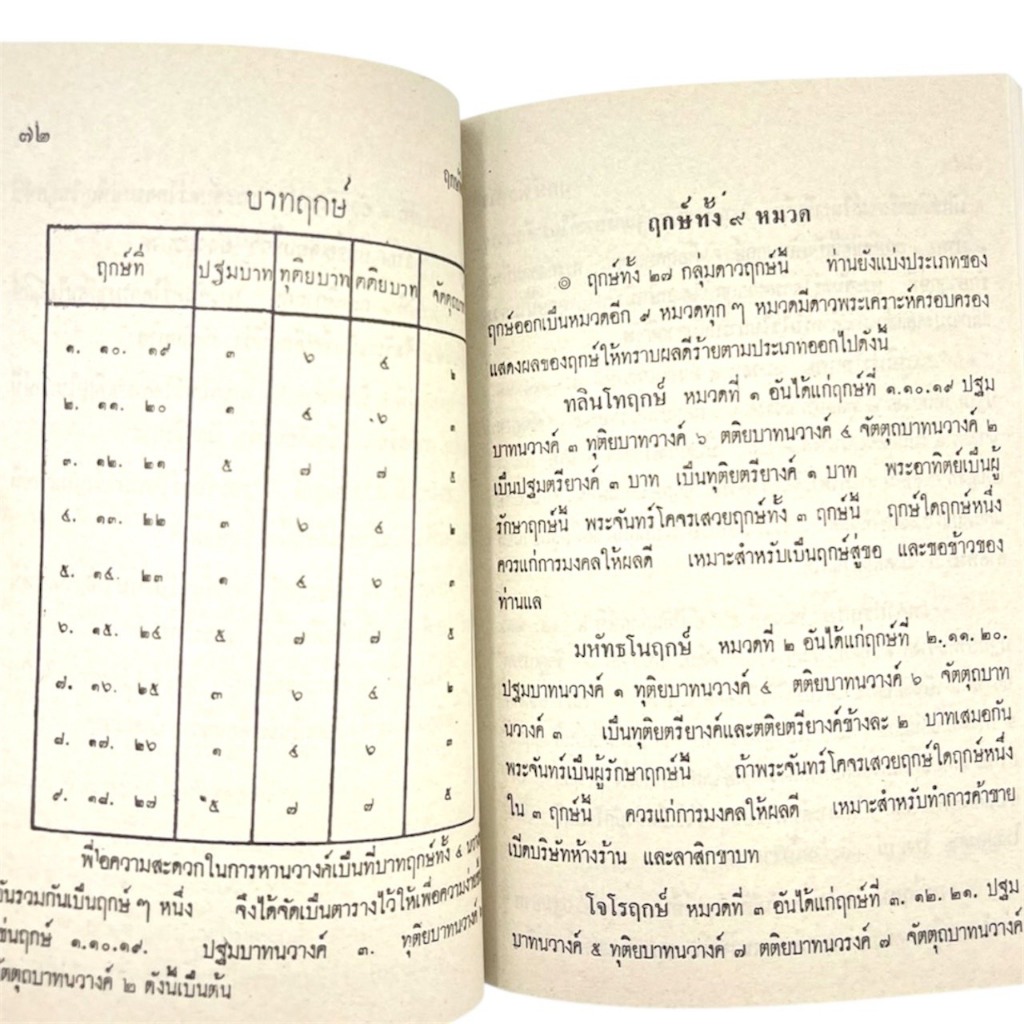 ๗๒
บาทฤกษ์
ฤกษ์ที่ ปฐมบาท ทุติยบาท ตติยบาท จัตตุถบาท
๑. ๑๐. ๑๙ ๓ ๖ ๔ ๒
๒. ๑๑. ๒๐ ๑ ๔ ๖ ๓
๓. ๑๒. ๒๑ ๕ ๗ ๗ ๕
๔. ๑๓. ๒๒ ๓ ๖ ๔ ๒
๕. ๑๔. ๒๓ ๑ ๔ ๖ ๓
๖. ๑๕. ๒๔ ๕ ๗ ๗ ๕
๗. ๑๖. ๒๕ ๓ ๖ ๔ ๒
๘. ๑๗. ๒๖ ๑ ๔ ๖ ๓
๙. ๑๘. ๒๗ ๕ ๗ ๗ ๕
พื่อความสะดวกในการหานวางค์เป็นที่บาทฤกษ์ทั้ง ๔
อันรวมกันเป็นฤกษ์ ๆ หนึ่ง จึงได้จัดเป็นตารางไว้ให้เพื่อความง่าย
เช่นฤกษ์ ๑.๑๐.๑๙. ปฐมบาทนวางค์ ๓. ทุติยบาทนวางค์
จัตตุถบาทนวางค์ ๒ ดังนี้เป็นต้น
ฤกษ์ทั้ง ๙ หมวด
๏ ฤกษ์ทั้ง ๒๗ กลุ่มดาวฤกษ์นี้ ท่านยังแบ่งประเภทของ
ฤกษ์ออกเป็นหมวดอีก ๙ หมวดทุก ๆ หมวดมีดาวพระเคราะห์ครอบครอง
แสดงผลของฤกษ์ให้ทราบผลดีร้ายตามประเภทออกไปดังนี้
ทลินโทฤกษ์ หมวดที่ ๑ อันได้แก่ฤกษ์ที่ ๑.๑๐.๑๙ ปฐม
บาทนวางค์ ๓ ทุติยบาทวางค์ ๖ ตติยบาทนวางค์ ๔ จัตตุถบาทนวางค์ ๒
เป็นปฐมตรียางค์ ๓ บาท เป็นทุติยตรียางค์ ๑ บาท พระอาทิตย์เป็นผู้
รักษาฤกษ์นี้ พระจันทร์โคจรเสวยฤกษ์ทั้ง ๓ ฤกษ์นี้ ฤกษ์ใดฤกษ์หนึ่ง
ควรแก่การมงคลให้ผลดี เหมาะสำหรับเป็นฤกษ์สู่ขอ และขอข้าวของ
ท่านแล
มหัทธโนฤกษ์ หมวดที่ ๒ อันได้แก่ฤกษ์ที่ ๒. ๑๑. ๒๐.
ปฐมบาทนวางค์ ๑ ทุติยบาทนวางค์ ๔ ตติยบาทนวางค์ ๖ จัตตุถบาท
นวางค์ ๓ เป็นทุติยตรียางค์และตติยตรียางค์ข้างละ ๒ บาทเสมอกัน
พระจันทร์เป็นผู้รักษาฤกษ์นี้ ถ้าพระจันทร์โคจรเสวยฤกษ์ใดฤกษ์หนึ่ง
ใน ๓ ฤกษ์นี้ ควรแก่การมงคลให้ผลดี เหมาะสำหรับทำการค้าขาย
เปิดบริษัทห้างร้าน และลาสิกขาบท
โจโรฤกษ์ หมวดที่ ๓ อันได้แก่ฤกษ์ที่ ๓. ๑๒. ๒๑. ปฐม
บาทนวางค์ ๕ ทุติยบาทนวางค์ ๗ ตติยบาทนวรงค์ ๗ จัตตุถบาทนวางค์